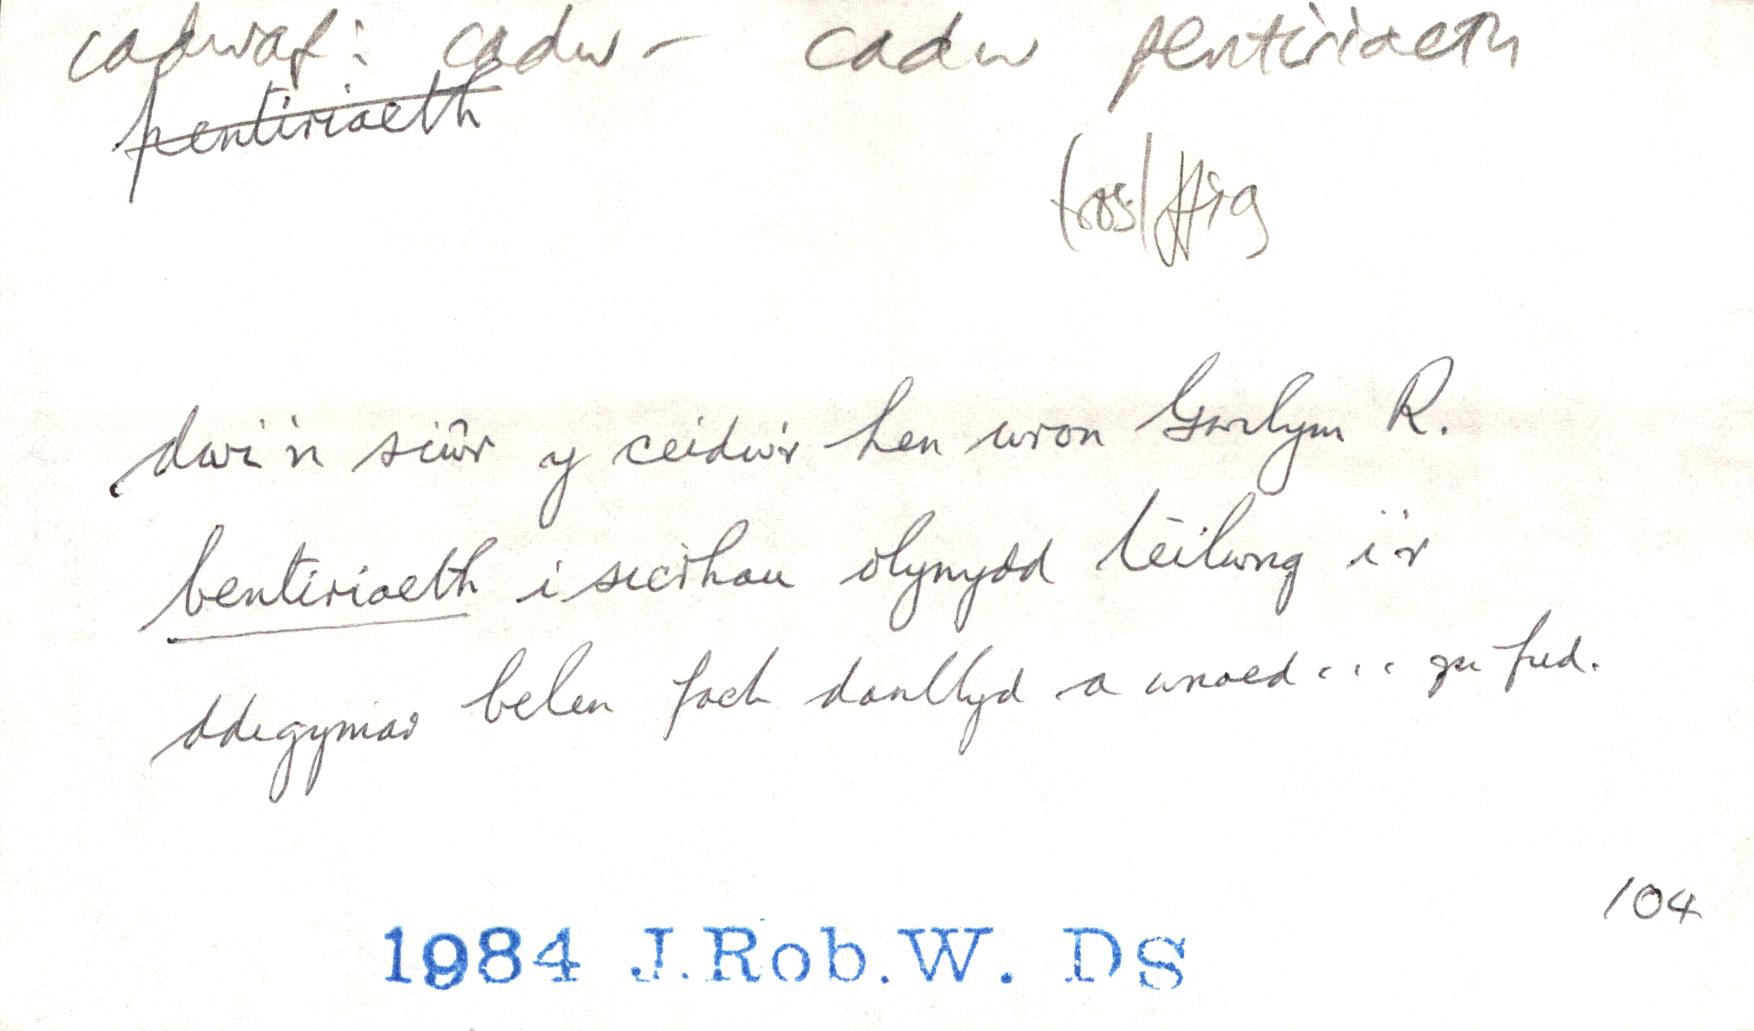 cadwaf: cadw – cadw pentiriaeth
pentiriaeth
(ros)/ffig
dwi'n siŵr y ceidw'r hen wron Gwilym R.
bentiriaeth i sicrhau olynydd teilwng i'r
ddegymar belen fach danllyd a wnaed... gu fud.
104
1984 J.Rob.W. DS